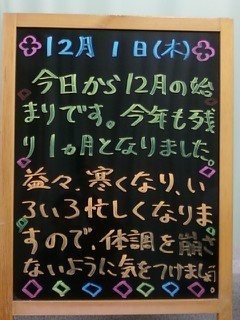 12月1日(木)
今日から12月の始
まりです。今年も残
り1ヵ月となりました。
益々、寒くなり、い
ろいろ忙しくなりま
すので、体調を崩さ
ないように気をつけましょう。